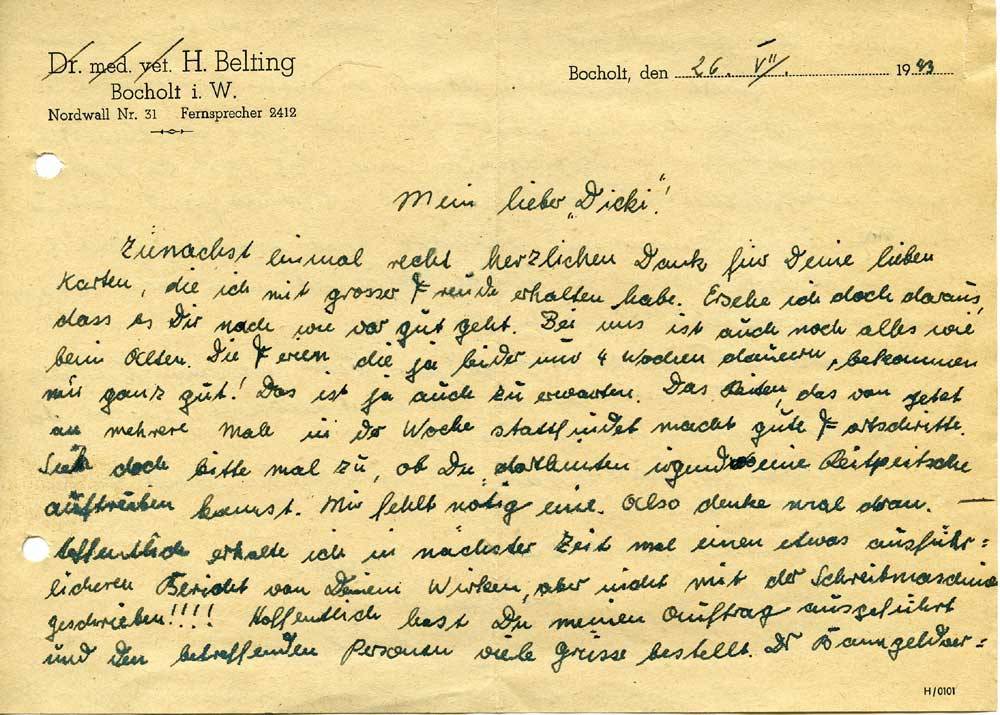 Dr. med. vet. H. Belting
Bocholt i. W.
Nordwall Nr. 31 Fernsprecher 2412
Bocholt, den 26. VII. 1943
Mein lieber „Dicki“!
Zunächst einmal recht herzlichen Dank für Deine lieben
Karten, die ich mit grosser Freude erhalten habe. Ersehe ich doch daraus,
dass es Dir nach wie vor gut geht. Bei uns ist auch noch alles wie
beim Alten. Die Ferien die ja leider nur 4 Wochen dauern, bekommen
mir ganz gut! Das ist ja auch zu erwarten. Das Reiten, das von jetzt
an mehrere Male in der Woche stattfindet macht gute Fortschritte.
Sieh doch bitte mal zu, ob Du dorthinten irgendwo eine Reitpeitsche
auftreiben kannst. Mir fehlt nötig eine. Also denke mal dran. —
Hoffentlich erhalte ich in nächster Zeit mal einen etwas ausführ=
licheren Bericht von Deinem Wirken, aber nicht mit der Schreibmaschine
geschrieben!!!! Hoffentlich hast Du meinen Auftrag ausgeführt
und den betreffenden Personen viele Grüsse bestellt. Dr
H/0101